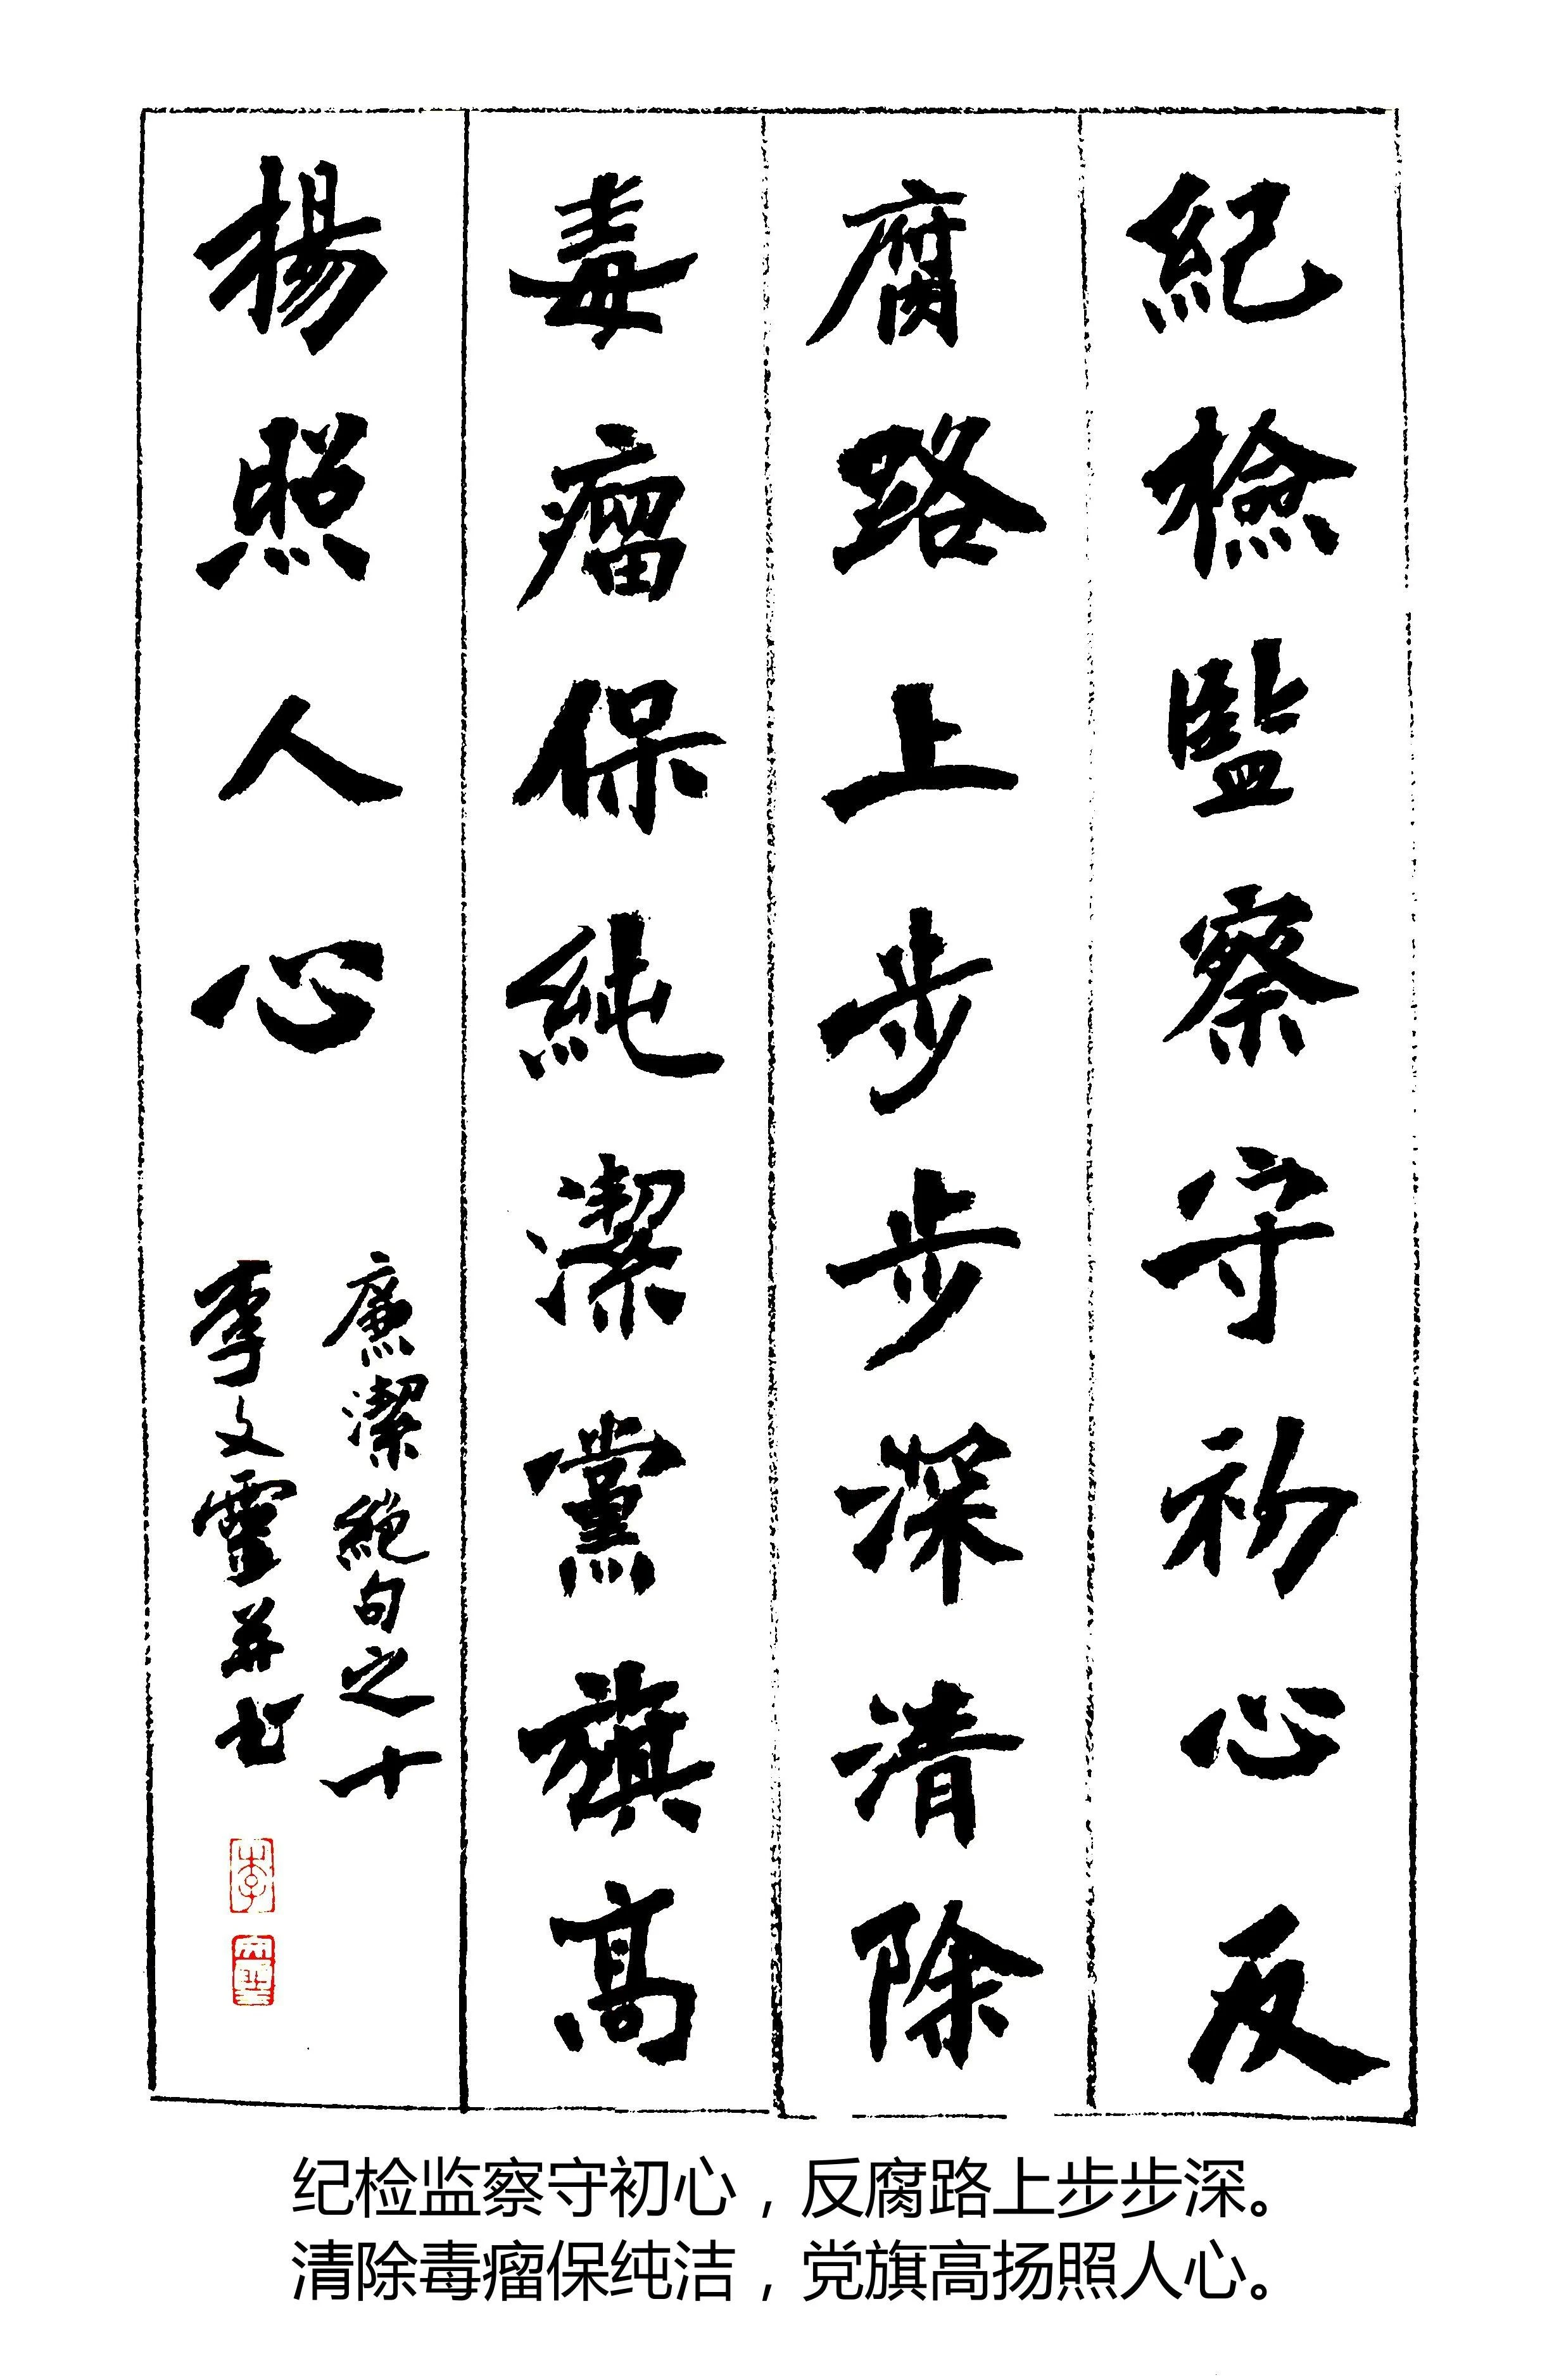 紀檢監察守初心反
腐路上步步深清除
毒瘤保純潔黨旗高
揚照人心
廉潔絕句之十
李文靈並书
李
纪检监察守初心，反腐路上步步深。
清除毒瘤保纯洁，党旗高扬照人心。